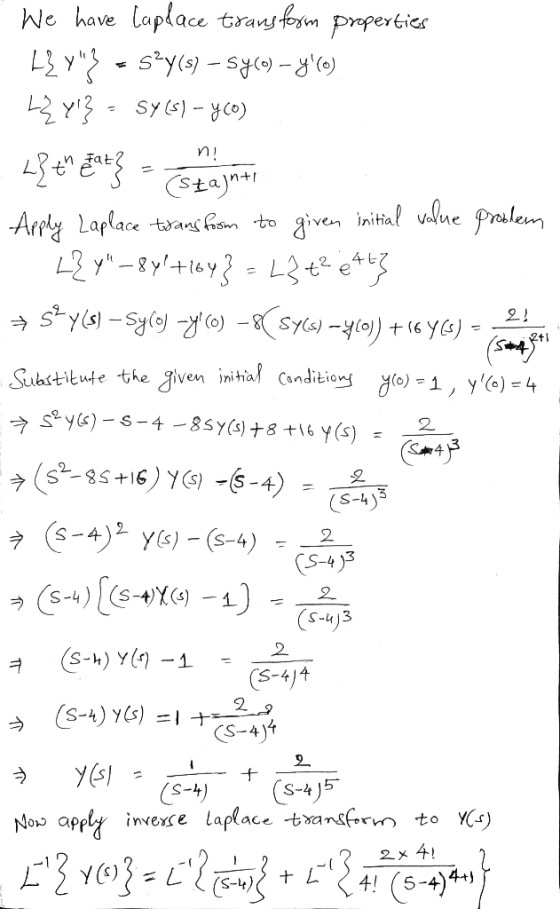 We have Laplace transform properties
L{y''} = S²Y(s) - Sy(0) - y'(0)
L{y'} = SY(s) - y(0)
L{tⁿ e^{∓at}} = n!/(S±a)^{n+1}
Apply Laplace transform to given initial value problem
L{y'' - 8y' + 16y} = L{t² e^{4t}}
⇒ S²Y(s) - Sy(0) - y'(0) - 8(SY(s) - y(0)) + 16Y(s) = 2!/(S-4)^{2+1}
Substitute the given initial Conditions y(0) = 1, y'(0) = 4
⇒ S²Y(s) - S - 4 - 8SY(s) + 8 + 16Y(s) = 2/(S-4)³
⇒ (S² - 8S + 16) Y(s) - (S-4) = 2/(S-4)³
⇒ (S-4)² Y(s) - (S-4) = 2/(S-4)³
⇒ (S-4)[(S-4)Y(s) - 1] = 2/(S-4)³
⇒ (S-4) Y(s) - 1 = 2/(S-4)⁴
⇒ (S-4) Y(s) = 1 + 2/(S-4)⁴
⇒ Y(s) = 1/(S-4) + 2/(S-4)⁵
Now apply inverse Laplace transform to Y(s)
L⁻¹{Y(s)} = L⁻¹{1/(S-4)} + L⁻¹{2×4!/4!(S-4)^{4+1}}